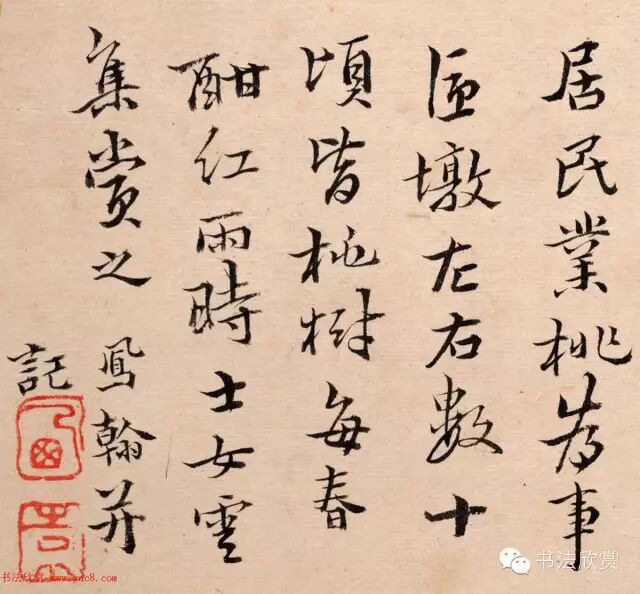 居民業桃為事
墩左右數十
頃皆桃樹每春
酣紅雨時士女雲
集賞之 鳳翰并
記
书法欣赏 www.yac8.com
书法欣赏